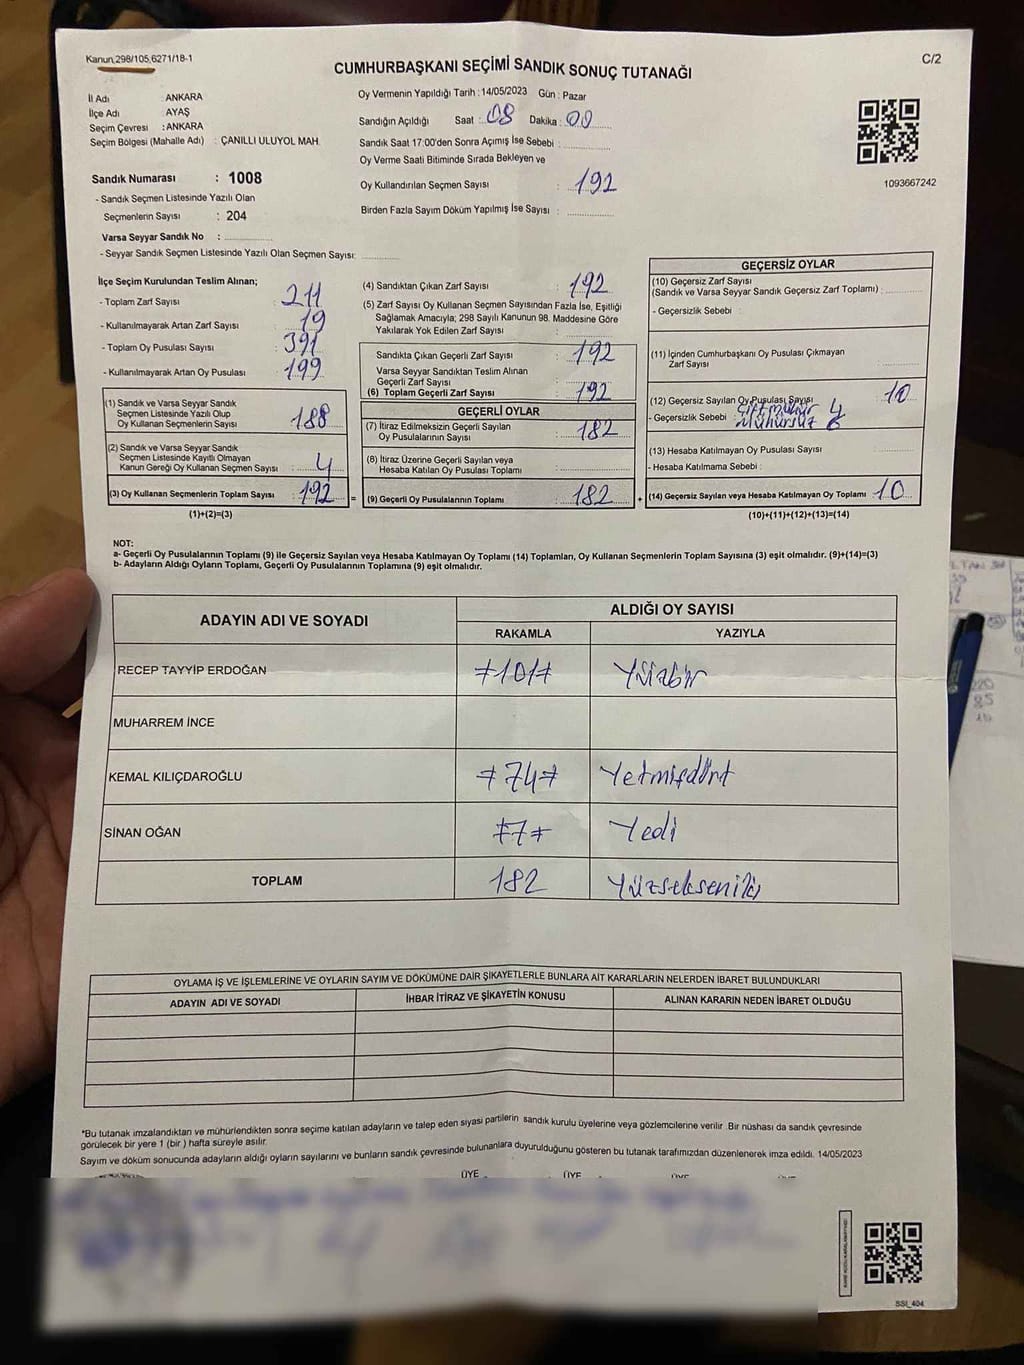 Kanun,298/105,6271/18-1
C/2
CUMHURBAŞKANI SEÇİMİ SANDIK SONUÇ TUTANAĞI
İl Adı : ANKARA
İlçe Adı : AYAŞ
Seçim Çevresi : ANKARA
Seçim Bölgesi (Mahalle Adı) : ÇANILLI ULUYOL MAH.
Sandık Numarası : 1008
- Sandık Seçmen Listesinde Yazılı Olan
Seçmenlerin Sayısı : 204
Varsa Seyyar Sandık No :
- Seyyar Sandık Seçmen Listesinde Yazılı Olan Seçmen Sayısı:
Oy Vermenin Yapıldığı Tarih : 14/05/2023 Gün : Pazar
Sandığın Açıldığı Saat : 08 Dakika : 00
Sandık Saat 17:00'den Sonra Açımış İse Sebebi :
Oy Verme Saati Bitiminde Sırada Bekleyen ve
Oy Kullandırılan Seçmen Sayısı : 192
Birden Fazla Sayım Döküm Yapılmış İse Sayısı :
1093667242
İlçe Seçim Kurulundan Teslim Alınan;
- Toplam Zarf Sayısı : 211
- Kullanılmayarak Artan Zarf Sayısı : 19
- Toplam Oy Pusulası Sayısı : 391
- Kullanılmayarak Artan Oy Pusulası : 199
(1) Sandık ve Varsa Seyyar Sandık
Seçmen Listesinde Yazılı Olup
Oy Kullanan Seçmenlerin Sayısı : 188
(2) Sandık ve Varsa Seyyar Sandık
Seçmen Listesinde Kayıtlı Olmayan
Kanun Gereği Oy Kullanan Seçmen Sayısı : 4
(3) Oy Kullanan Seçmenlerin Toplam Sayısı : 192 =
(1)+(2)=(3)
(4) Sandıktan Çıkan Zarf Sayısı : 192
(5) Zarf Sayısı Oy Kullanan Seçmen Sayısından Fazla İse, Eşitliği
Sağlamak Amacıyla; 298 Sayılı Kanunun 98. Maddesine Göre
Yakılarak Yok Edilen Zarf Sayısı :
Sandıkta Çıkan Geçerli Zarf Sayısı : 192
Varsa Seyyar Sandıktan Teslim Alınan
Geçerli Zarf Sayısı :
(6) Toplam Geçerli Zarf Sayısı : 192
GEÇERLİ OYLAR
(7) İtiraz Edilmeksizin Geçerli Sayılan
Oy Pusulalarının Sayısı : 182
(8) İtiraz Üzerine Geçerli Sayılan veya
Hesaba Katılan Oy Pusulası Toplamı :
(9) Geçerli Oy Pusulalarının Toplamı : 182 +
GEÇERSİZ OYLAR
(10) Geçersiz Zarf Sayısı
(Sandık ve Varsa Seyyar Sandık Geçersiz Zarf Toplamı) :
- Geçersizlik Sebebi :
(11) İçinden Cumhurbaşkanı Oy Pusulası Çıkmayan
Zarf Sayısı :
(12) Geçersiz Sayılan Oy Pusulası Sayısı : 10
çift mühür 4
- Geçersizlik Sebebi : mühürsüz 6
(13) Hesaba Katılmayan Oy Pusulası Sayısı :
- Hesaba Katılmama Sebebi :
(14) Geçersiz Sayılan veya Hesaba Katılmayan Oy Toplamı : 10
(10)+(11)+(12)+(13)=(14)
NOT:
a- Geçerli Oy Pusulalarının Toplamı (9) ile Geçersiz Sayılan veya Hesaba Katılmayan Oy Toplamı (14) Toplamları, Oy Kullanan Seçmenlerin Toplam Sayısına (3) eşit olmalıdır. (9)+(14)=(3)
b- Adayların Aldığı Oyların Toplamı, Geçerli Oy Pusulalarının Toplamına (9) eşit olmalıdır.
ADAYIN ADI VE SOYADI ALDIĞI OY SAYISI
RAKAMLA YAZIYLA
RECEP TAYYİP ERDOĞAN ≠101≠ Yüzbir
MUHARREM İNCE
KEMAL KILIÇDAROĞLU ≠74≠ Yetmişdört
SİNAN OĞAN ≠7≠ Yedi
TOPLAM 182 Yüzsekseniki
OYLAMA İŞ VE İŞLEMLERİNE VE OYLARIN SAYIM VE DÖKÜMÜNE DAİR ŞİKAYETLERLE BUNLARA AİT KARARLARIN NELERDEN İBARET BULUNDUKLARI
ADAYIN ADI VE SOYADI İHBAR İTİRAZ VE ŞİKAYETİN KONUSU ALINAN KARARIN NEDEN İBARET OLDUĞU
*Bu tutanak imzalandıktan ve mühürlendikten sonra seçime katılan adayların ve talep eden siyasi partilerin sandık kurulu üyelerine veya gözlemcilerine verilir. Bir nüshası da sandık çevresinde
görülecek bir yere 1 (bir ) hafta süreyle asılır.
Sayım ve döküm sonucunda adayların aldığı oyların sayılarını ve bunların sandık çevresinde bulunanlara duyurulduğunu gösteren bu tutanak tarafımızdan düzenlenerek imza edildi. 14/05/2023
ÜYE ÜYE ÜYE ÜYE
SSI_404